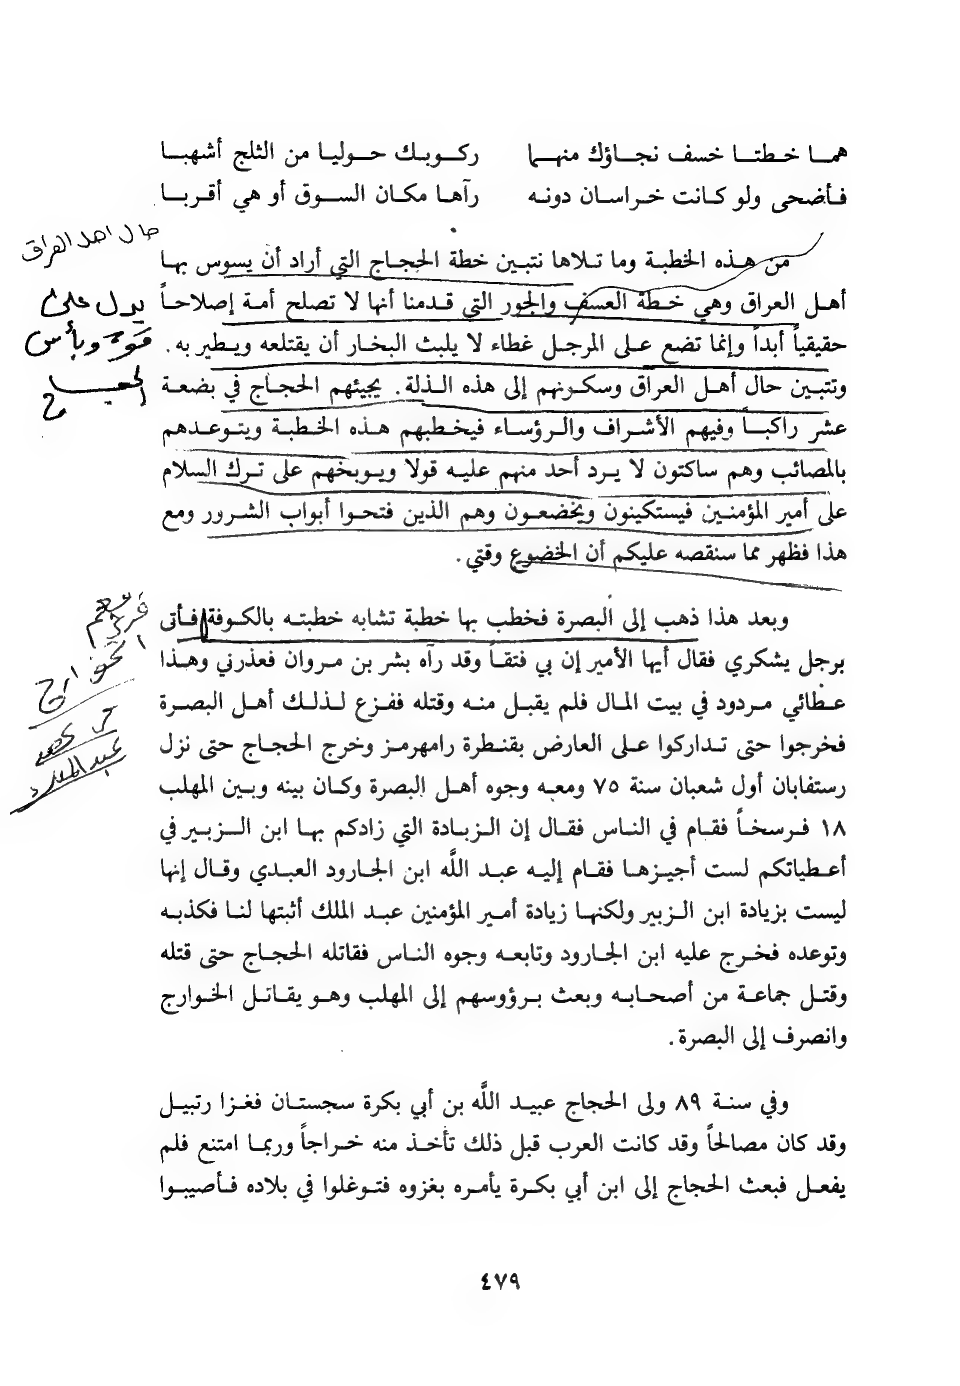 همـا خـطتـا خسف نجـاؤك منهـما ركـوبـك حـوليـا من الثلج أشهبـا
فـأضحى ولو كـانت خـراسـان دونـه رآهـا مكـان السـوق أو هي أقـربـا
من هـذه الخطبـة وما تـلاها نتبـين خطة الحجـاج التي أراد أن يسوس بهـا
أهـل العراق وهي خـطة العسف والجور التي قـدمنا أنها لا تصلح أمـة إصلاحـاً
حقيقيـاً أبداً وإنما تضع عـلى المرجـل غطاء لا يلبث البخـار أن يقتلعه ويـطير به.
وتتبـين حال أهـل العـراق وسكـونهم إلى هذه الـذلة. يجيئهم الحجـاج في بضعـة
عشر راكبـاً وفيهم الأشـراف والـرؤسـاء فيخـطبهم هـذه الخـطبـة ويتـوعـدهم
بالمصائب وهم ساكتون لا يـرد أحد منهم عليـه قولا ويـوبخهم على تـرك السلام
على أمير المؤمنـين فيستكينون ويخضعـون وهم الذين فتحـوا أبواب الشـرور ومع
هذا فظهر مما سنقصه عليكم أن الخضوع وقتي.
وبعد هذا ذهب إلى البصرة فخطب بها خطبة تشابه خطبتـه بالكـوفة فـأتى
برجل يشكري فقال أيها الأمير إن بي فتقـاً وقد رآه بشر بن مـروان فعذرني وهـذا
عـطائي مـردود في بيت المـال فلم يقبـل منـه وقتله ففـزع لـذلـك أهـل البصـرة
فخرجوا حتى تـداركوا عـلى العارض بقنـطرة رامهرمـز وخرج الحجـاج حتى نزل
رستفابان أول شعبان سنة ٧٥ ومعـه وجوه أهـل البصرة وكـان بينه وبـين المهلب
١٨ فـرسخـاً فقـام في النـاس فقـال إن الـزيـادة التي زادكم بهـا ابن الـزبـير في
أعـطياتكم لست أجيـزهـا فقـام إليـه عبـد اللّه ابن الجـارود العبـدي وقـال إنها
ليست بزيادة ابن الـزبير ولكنهـا زيادة أمـير المؤمنين عبـد الملك أثبتها لنـا فكذبـه
وتوعده فخـرج عليه ابن الجـارود وتابعـه وجوه النـاس فقاتله الحجـاج حتى قتله
وقتـل جماعـة من أصحـابـه وبعث بـرؤوسهم إلى المهلب وهـو يقـاتـل الخـوارج
وانصرف إلى البصرة.
وفي سنـة ٨٩ ولى الحجاج عبيـد اللّه بن أبي بكرة سجستـان فغـزا رتبيـل
وقد كان مصالحاً وقد كانت العرب قبل ذلك تأخـذ منه خـراجاً وربمـا امتنع فلم
يفعـل فبعث الحجاج إلى ابن أبي بكـرة يأمـره بغزوه فتـوغلوا في بلاده فـأصيبـوا
٤٧٩
حال اهل العراق
يدل على
قوة وبأس
الحجاج
الخوارج